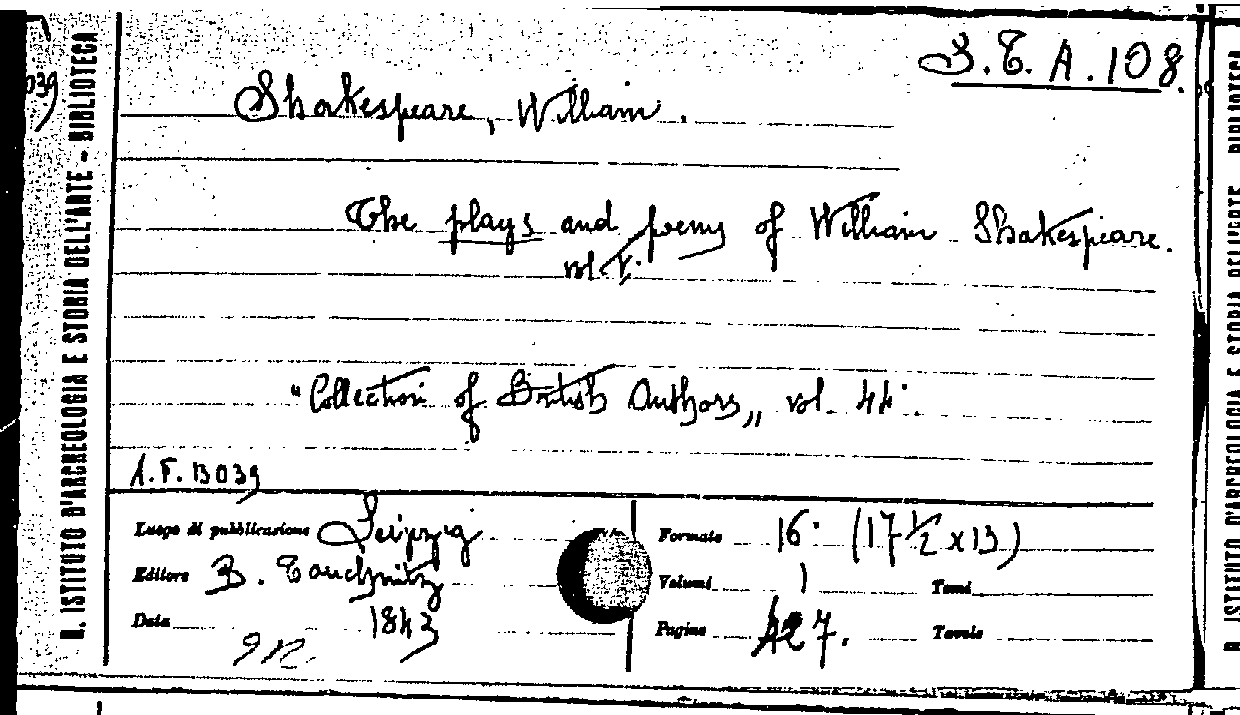 S.T. A. 108.
Shakespeare, William.
The plays and poems of William Shakespeare.
vol. V.
"Collection of British Authors,, vol. 44.
A.F. 13039
Luogo di pubblicazione Leipzig
Editore B. Tauchnitz
Data 1843
912.
Formato 16° (17 ½ x 13)
Volumi 1 Tomi
Pagine 427. Tavole
R. ISTITUTO D'ARCHEOLOGIA E STORIA DELL'ARTE - BIBLIOTECA
039
R. ISTITUTO D'ARCHEOLOGIA E STORIA DELL'ARTE BIBLIOTECA